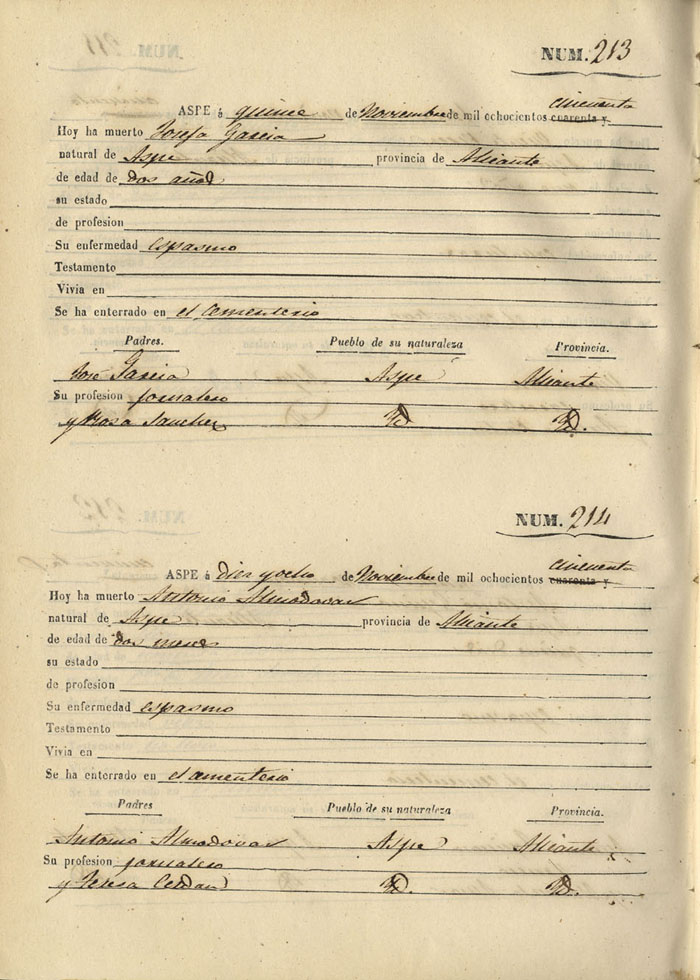 NUM. 213
cincuenta
ASPE á quince de Noviembre de mil ochocientos cuarenta y
Hoy ha muerto Josefa Garcia
natural de Aspe provincia de Alicante
de edad de dos años
su estado
de profesion
Su enfermedad espasmo
Testamento
Vivia en
Se ha enterrado en el Cementerio
Padres. Pueblo de su naturaleza Provincia.
José Garcia Aspe Alicante
Su profesion jornalero
y Rosa Sanchez Id. Id.
NUM. 214
cincuenta
ASPE á diez y ocho de Noviembre de mil ochocientos cuarenta y
Hoy ha muerto Antonio Almodovar
natural de Aspe provincia de Alicante
de edad de dos meses
su estado
de profesion
Su enfermedad espasmo
Testamento
Vivia en
Se ha enterrado en el cementerio
Padres Pueblo de su naturaleza Provincia.
Antonio Almodovar Aspe Alicante
Su profesion jornalero
y Teresa Cerdan Id. Id.